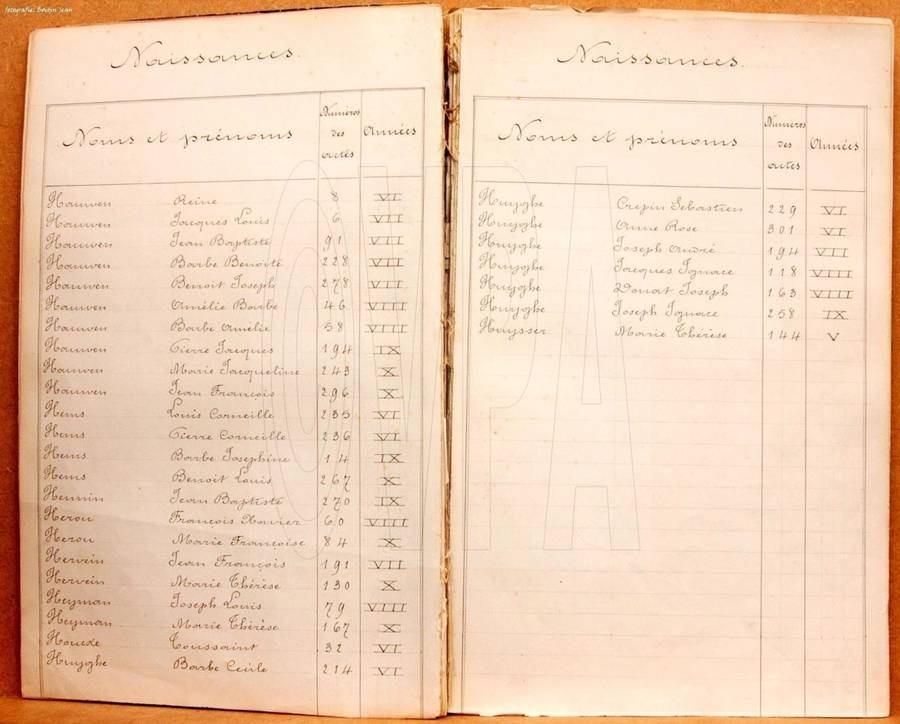 fotografie: Boutijn Jean
Naissances.
Noms et prénoms Numéros des actes Années
Hauwen Reine 8 VI
Hauwen Jacques Louis 6 VII
Hauwen Jean Baptiste 91 VII
Hauwen Barbe Benoite 228 VII
Hauwen Benoit Joseph 278 VII
Hauwen Amélie Barbe 46 VIII
Hauwen Barbe Amélie 58 VIII
Hauwen Pierre Jacques 194 IX
Hauwen Marie Jacqueline 243 X
Hauwen Jean François 296 X
Hems Louis Corneille 235 VI
Hems Pierre Corneille 236 VI
Hems Barbe Josephine 14 IX
Hems Benoit Louis 267 X
Hennin Jean Baptiste 270 IX
Herou François Xavier 60 VIII
Herou Marie Françoise 84 X
Hervein Jean François 191 VII
Hervein Marie Thérèse 130 X
Heyman Joseph Louis 79 VIII
Heyman Marie Thérèse 167 X
Houcke Toussaint 32 VI
Huyghe Barbe Cécile 214 VI
Naissances.
Noms et prénoms Numéros des actes Années
Huyghe Crepin Sebastien 229 VI
Huyghe Anne Rose 301 VI
Huyghe Joseph André 194 VII
Huyghe Jacques Ignace 118 VIII
Huyghe Donat Joseph 163 VIII
Huyghe Joseph Ignace 258 IX
Huysser Marie Thérèse 144 V